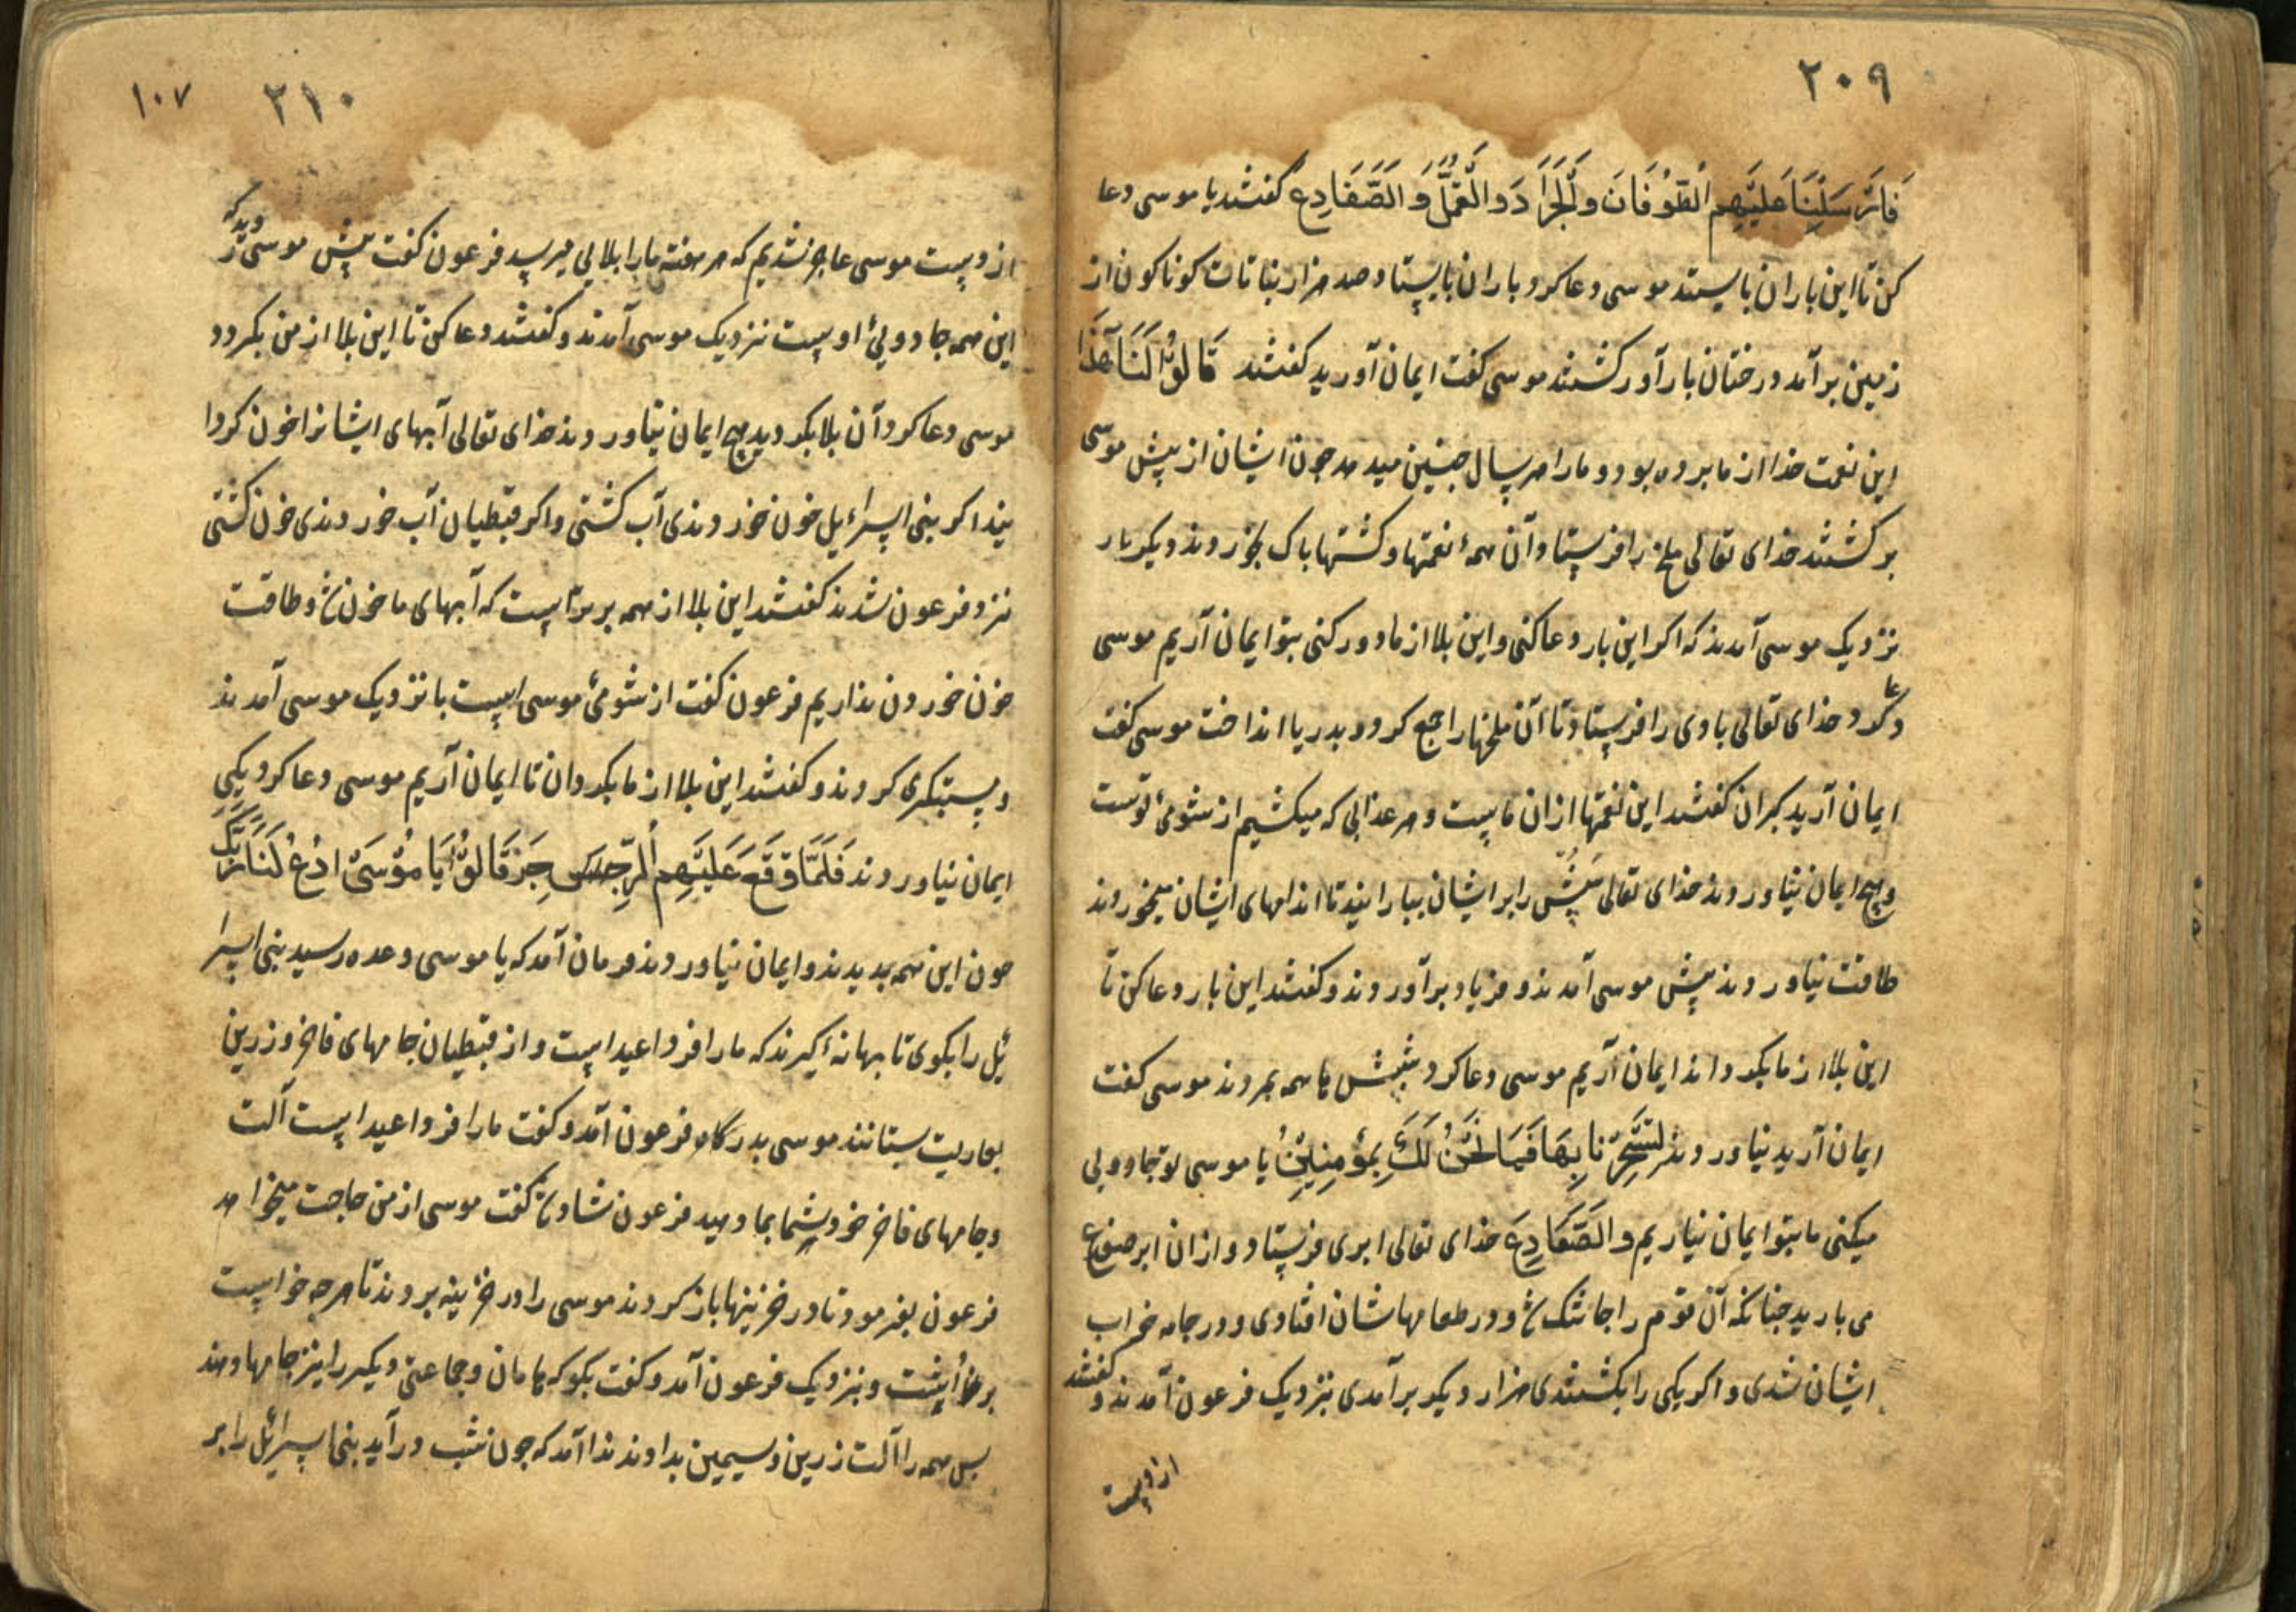 ٢٠٩
فَاَرْسَلْنَا عَلَيْهِم الْطُوْفَانَ وَالْجَرَادَ وَالْقُمَّلَ وَالضَّفَادِع گفتند یا موسی دعا
کن تا این باران بایستد موسی دعا کرد باران بایستاد صد هزار نباتات کوناکون از
زمین برآمد درختان بارآور کشتند موسی کفت ایمان آورید کفتند قَالُوْا لَنَا هَذَا
این نعمت خدا از ما برده بود و ما را هر سال جنین میدهد جون ایشان از پیش موسی
برکشتند خدای تعالی ملخ را فرستاد آن همهٔ نعمتها و کشتها باک بخوردند دیکر بار
نزدیک موسی آمدند که اکر این بار دعا کنی و این بلا از ما دور کنی بتو ایمان آریم موسی
دعا کرد خدای تعالی بادی را فرستاد تا آن ملخها را جمع کرد و بدریا انداخت موسی کفت
ایمان آرید کبران کفتند این نعمتها از آن ماست و هر عذابی که میکشیم از شومیٔ توست
و هیچ ایمان نیاوردند خدای تعالی سپش را بر ایشان ببارانید تا اندامهای ایشان میخوردند
طاقت نیاوردند پیش موسی آمدند و فریاد برآوردند و کفتند این بار دعا کن تا
این بلا از ما بکرداند ایمان آریم موسی دعا کرد شپش ها همه بمردند موسی کفت
ایمان آرید نیاوردند لِتَسْحَرَنَا بِهَا فَمَا نَحْنُ لَكَ بِمُؤْمِنِيْنَ یا موسی تو جادویی
میکنی ما بتو ایمان نیاریم والضَّفَادِعَ خدای تعالی ابری فرستاد و از ان ابر ضفوع
می بارید جنانکه آن قوم را جا تنک شد و در طعامهاشان افتادی و در جامه خراب
ایشان شدی و اکر یکی را بکشتندی هزار دیکر برآمدی نزدیک فرعون آمدند و کفتند
از دست
٢١٠
١٠٧
از دست موسی عاجز شدیم که هر هفته ما را بلایی میرسد فرعون کفت پیش موسی رَوید که
این همه جادویئ اوست نزدیک موسی آمدند و کفتند دعا کن تا این بلا از من بکردد
موسی دعا کرد آن بلا بکردید هیچ ایمان نیاوردند خدای تعالی آبهای ایشانرا خون کردا
نید اکر بنی اسرائیل خون خوردندی آب کشتی و اکر قبطیان آب خوردندی خون کشتی
نزد فرعون شدند کفتند این بلا از همه برتر است که آبهای ما خون شد و طاقت
خون خوردن نداریم فرعون کفت از شومیٔ موسی است با نزدیک موسی آمدند
دستبکری کردند و کفتند این بلا از ما بکردان تا ایمان آریم موسی دعا کرد یکی
ایمان نیاوردند فَلَمَّا وَقَعَ عَلَيْهِم الرِّجز قَالُوْا يَا مُوْسَىْ ادْعُ لَنَا رَبَّكَ
جون این همه بدیدند و ایمان نیاوردند فرمان آمد که یا موسی وعده رسید بنی اسرا
ئیل را بکوی تا بهانه کیرند که ما را فردا عید است و از قبطیان جامهای فاخر و زرین
بعاریت بستانند موسی بدرکاه فرعون آمد و کفت ما را فردا عید است آلت
و جامهای فاخر خود شما بما دهید فرعون شاد شد کفت موسی از من حاجت میخواهد
فرعون بفرمود تا در خزینها باز کردند موسی را در خزینه بردند تا هرجه خواست
برداشت و نزدیک فرعون آمد و کفت بکو که هامان و جماعتی دیکر را نیز جامها دهند
بس همه را آلت زرین و سیمین بدادند ندا آمد که جون شب درآید بنی اسرائیل را بر